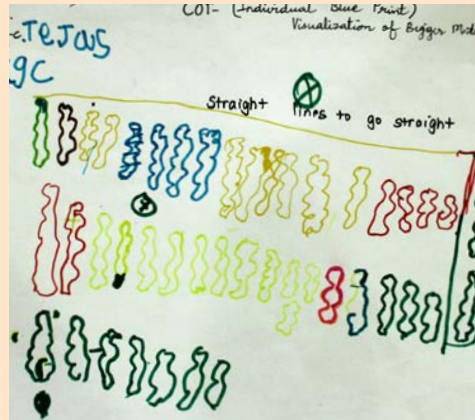 COT- (Individual Blue Print)
Visualization of Bigger Mod
Tejas
9C
Straight lines to go straight